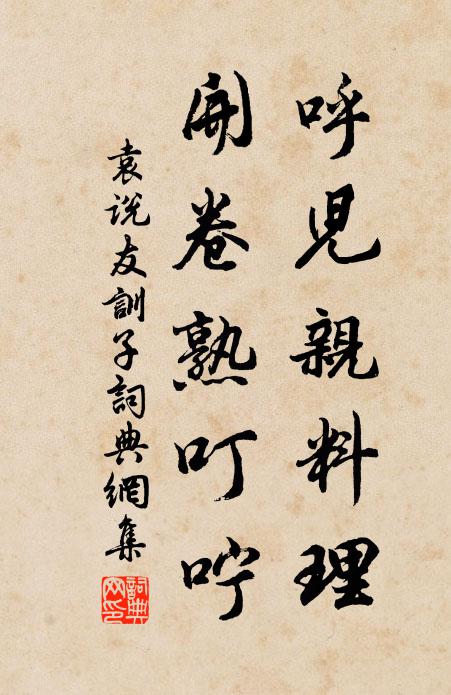 呼児親料理
開卷熟叮咛
袁说友訓子詞典網集
詞典網印